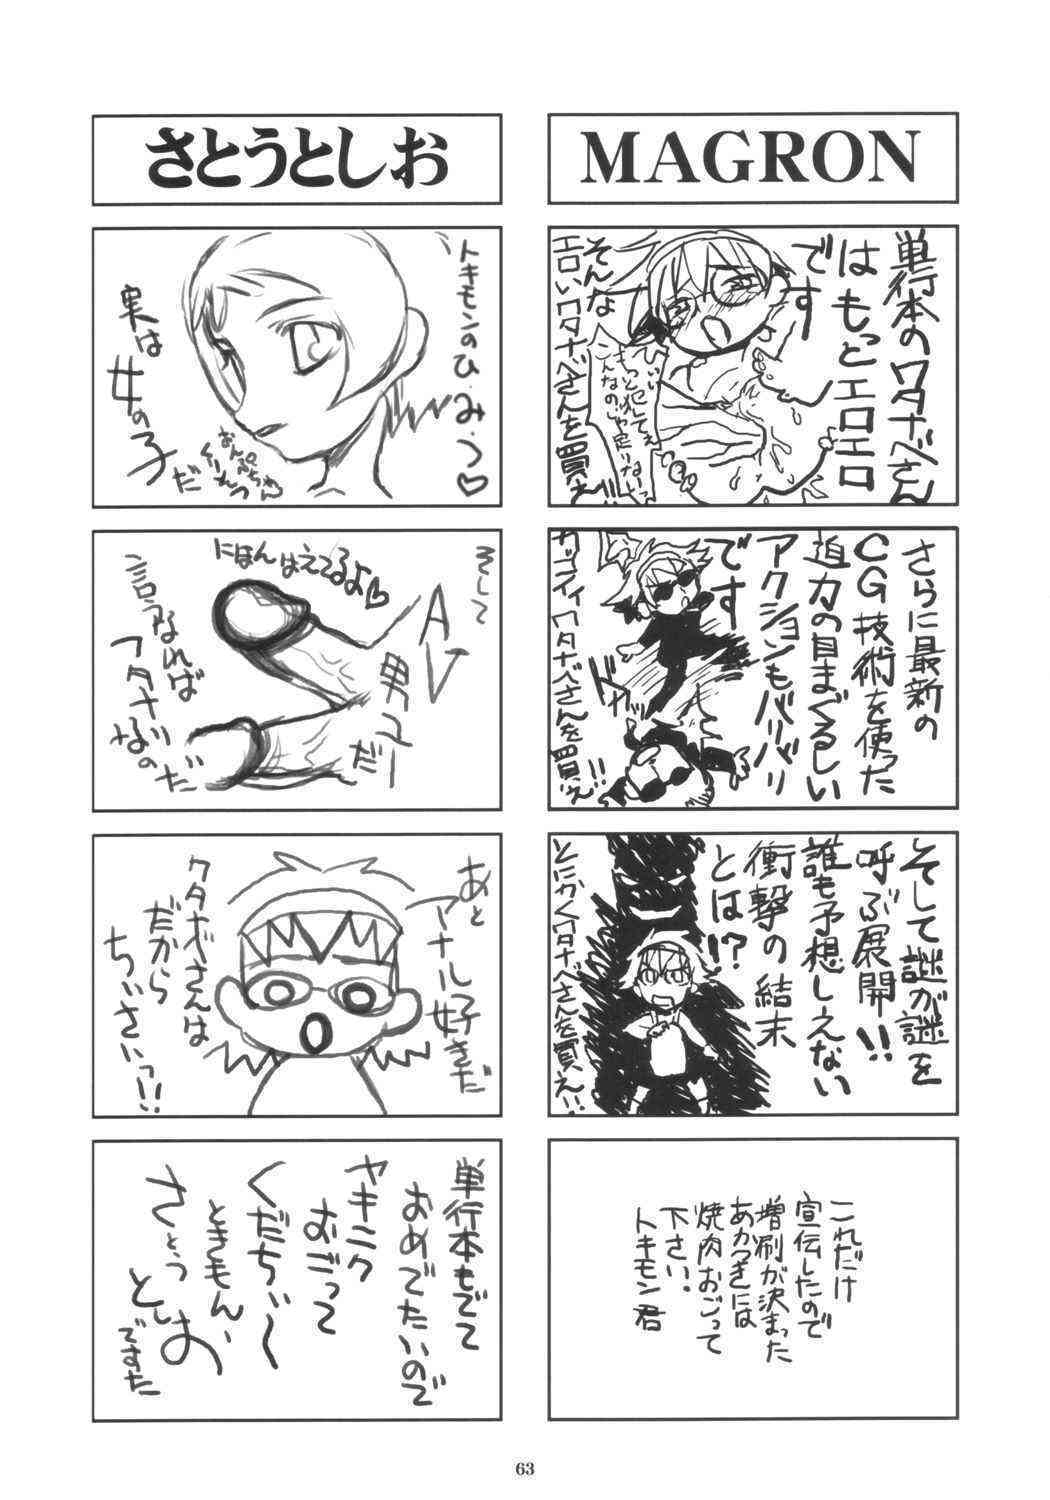 MAGRON
単行本のワタナベさん
はもっとエロエロ
です
そんな
エロいワタナベさんを買え!!
さらに最新の
CG技術を使った
迫力の目まぐるしい
アクションもバリバリ
です
カッコイイワタナベさんを買え!!
そして謎が謎を
呼ぶ展開!!
誰も予想しえない
衝撃の結末
とは!?
とにかくワタナベさんを買え!!
これだけ
宣伝したので
増刷が決まった
あかつきには
焼肉おごって
下さい!
トキモン君
さとうとしお
トキモンのひ・み・つ♡
実は
女の子
だ
おんぷちゃん
そして
AV
男ユーだ
にほんはえてるよ♡
言うなれば
フタナリ
なのだ
あと
アナル好きだ
だから
ちいさいっ!!
単行本もでて
おめでたいので
ヤキニク
おごって
くだちぃ〜
ときもん、
さとう
としお
ですた
63